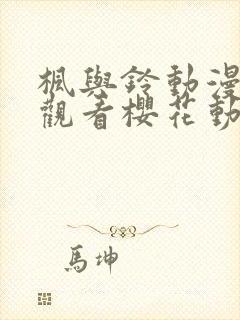 楓與鈴動漫
觀看櫻花動
馬坤